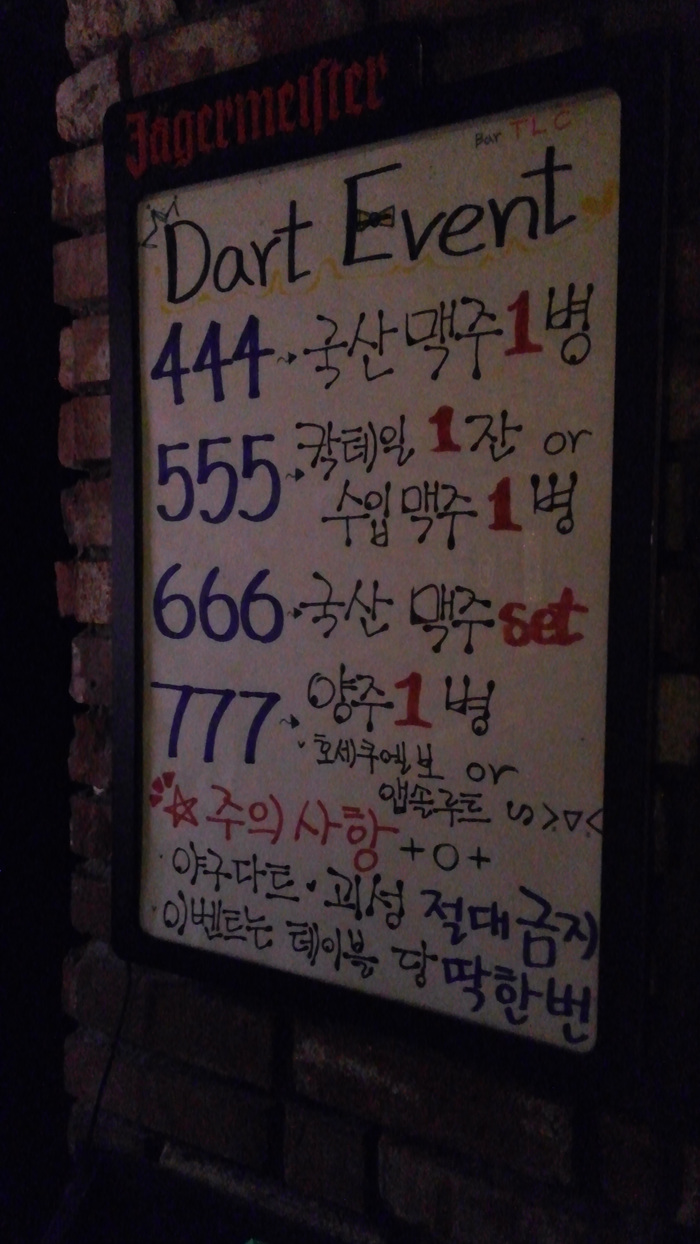 Jägermeister
Bar TLC
Dart Event
444 → 국산 맥주 1병
555 → 칵테일 1잔 or
수입 맥주 1병
666 → 국산 맥주 set
777 → 양주 1병
호세쿠엘보 or
앱솔루트 ∽>▽<
☆ 주의 사항 +o+
야구다트 · 괴성 절대 금지
이벤트는 테이블 당 딱 한 번